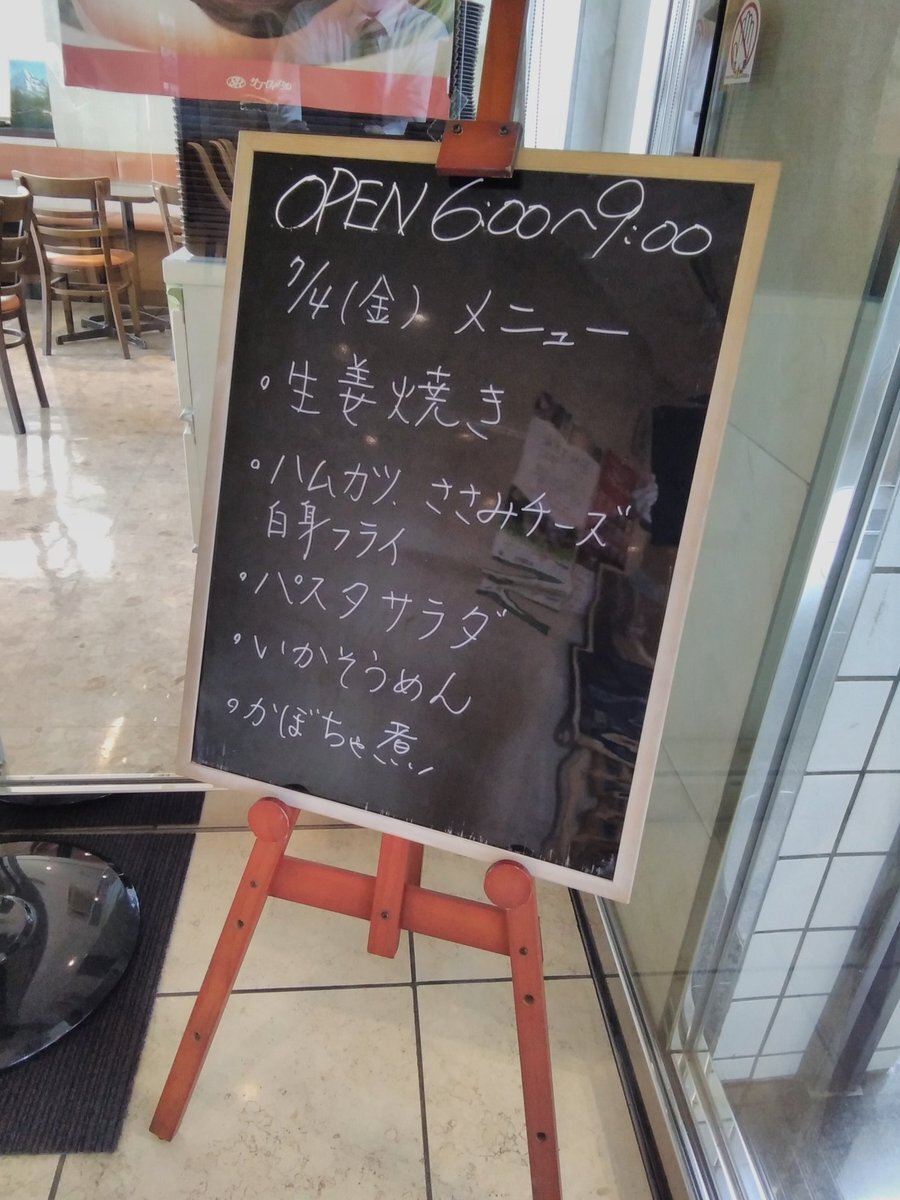 OPEN 6:00~9:00
7/4(金) メニュー
・生姜焼き
・ハムカツ、ささみチーズ
自身フライ
・パスタサラダ
・いかそうめん
・かぼちゃ煮